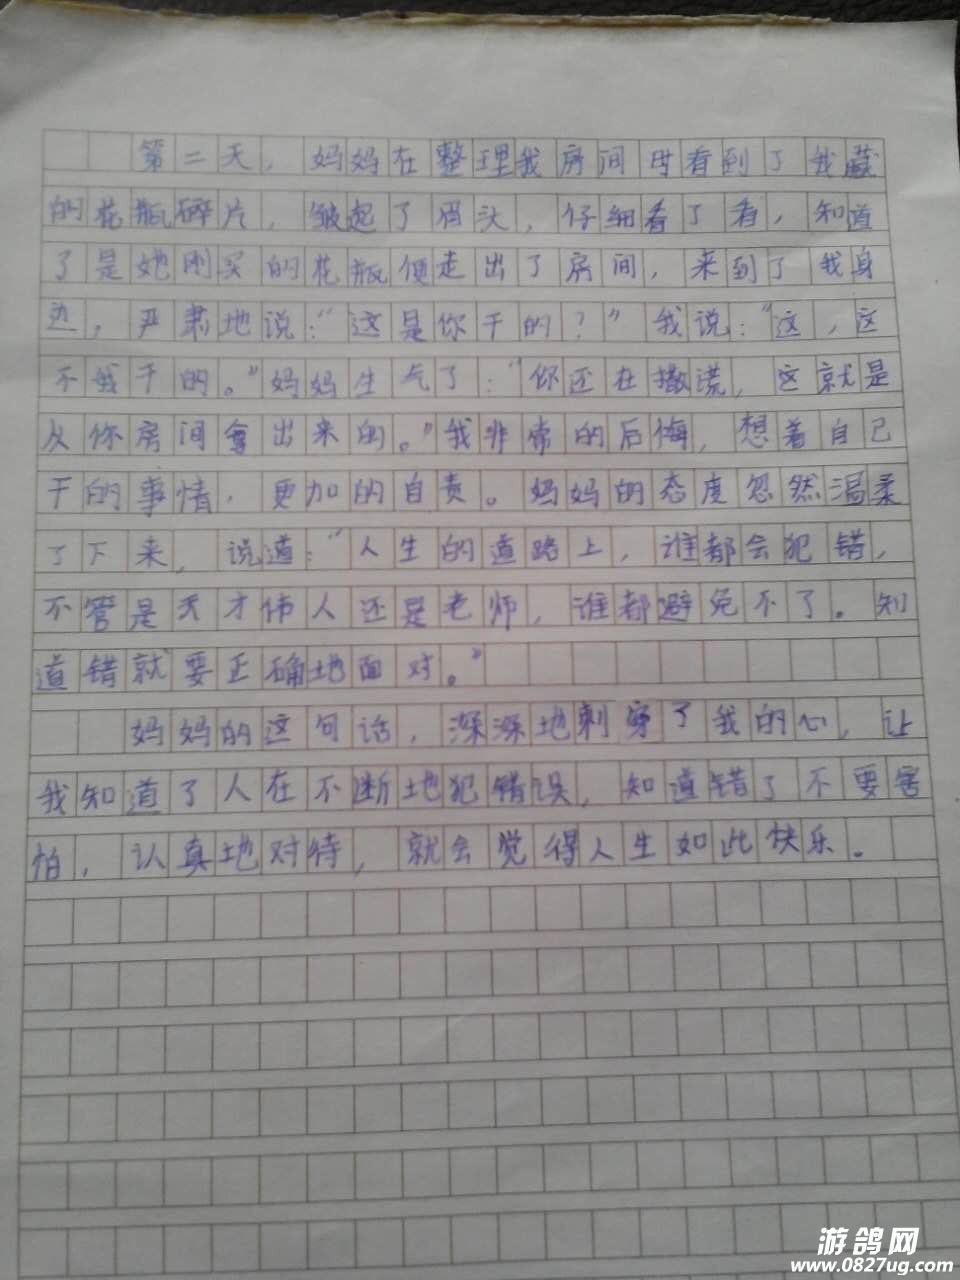 第二天，妈妈在整理我房间时看到了我藏
的花瓶碎片，皱起了眉头，仔细看了看，知道
了是她刚买的花瓶便走出了房间，来到了我身
边，严肃地说：“这是你干的？”我说：“这，这
不我干的。”妈妈生气了：“你还在撒谎，这就是
从你房间拿出来的。”我非常的后悔，想着自己
干的事情，更加的自责。妈妈的态度忽然温柔
了下来，说道：“人生的道路上，谁都会犯错，
不管是天才伟人还是老师，谁都避免不了。知
道错就要正确地面对。”
妈妈的这句话，深深地刺穿了我的心，让
我知道了人在不断地犯错误，知道错了不要害
怕，认真地对待，就会觉得人生如此快乐。
游鸽网
www.0827ug.com